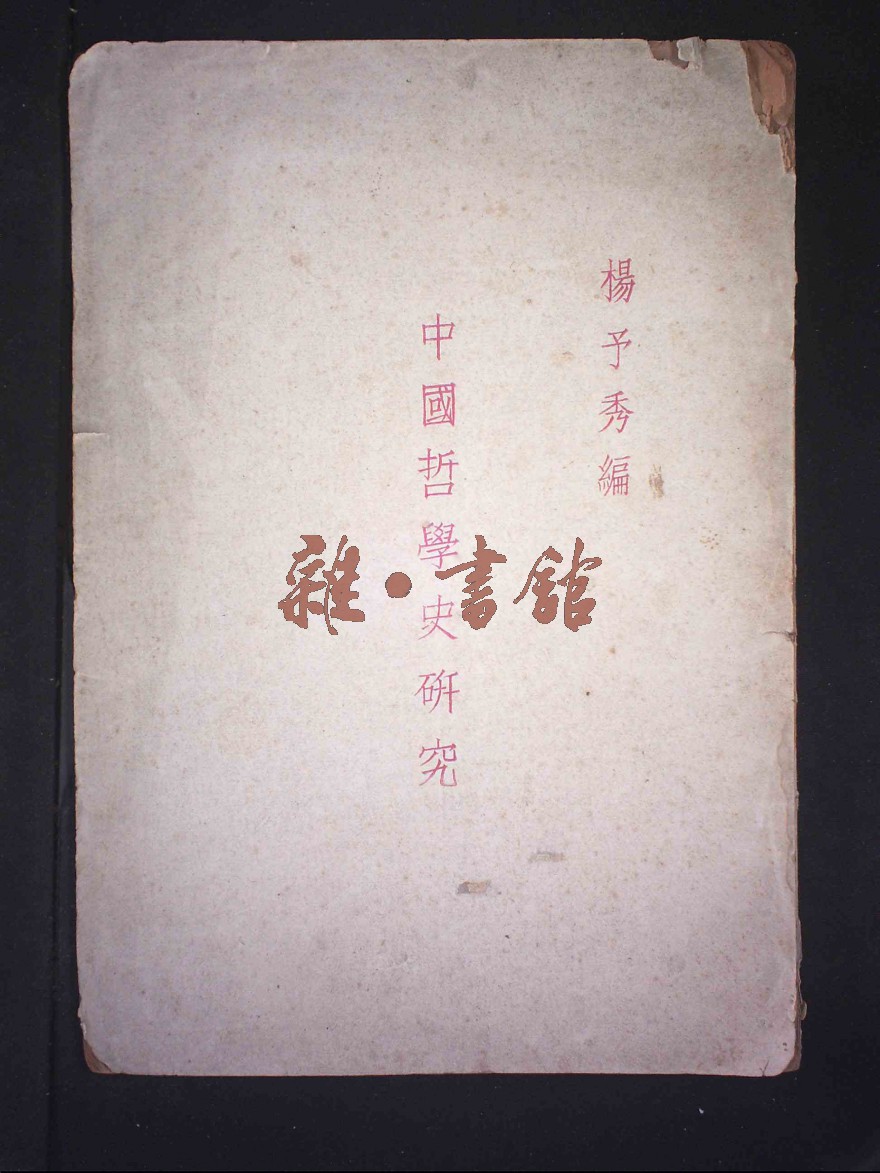 楊予秀編
中國哲學史研究
雜·書館